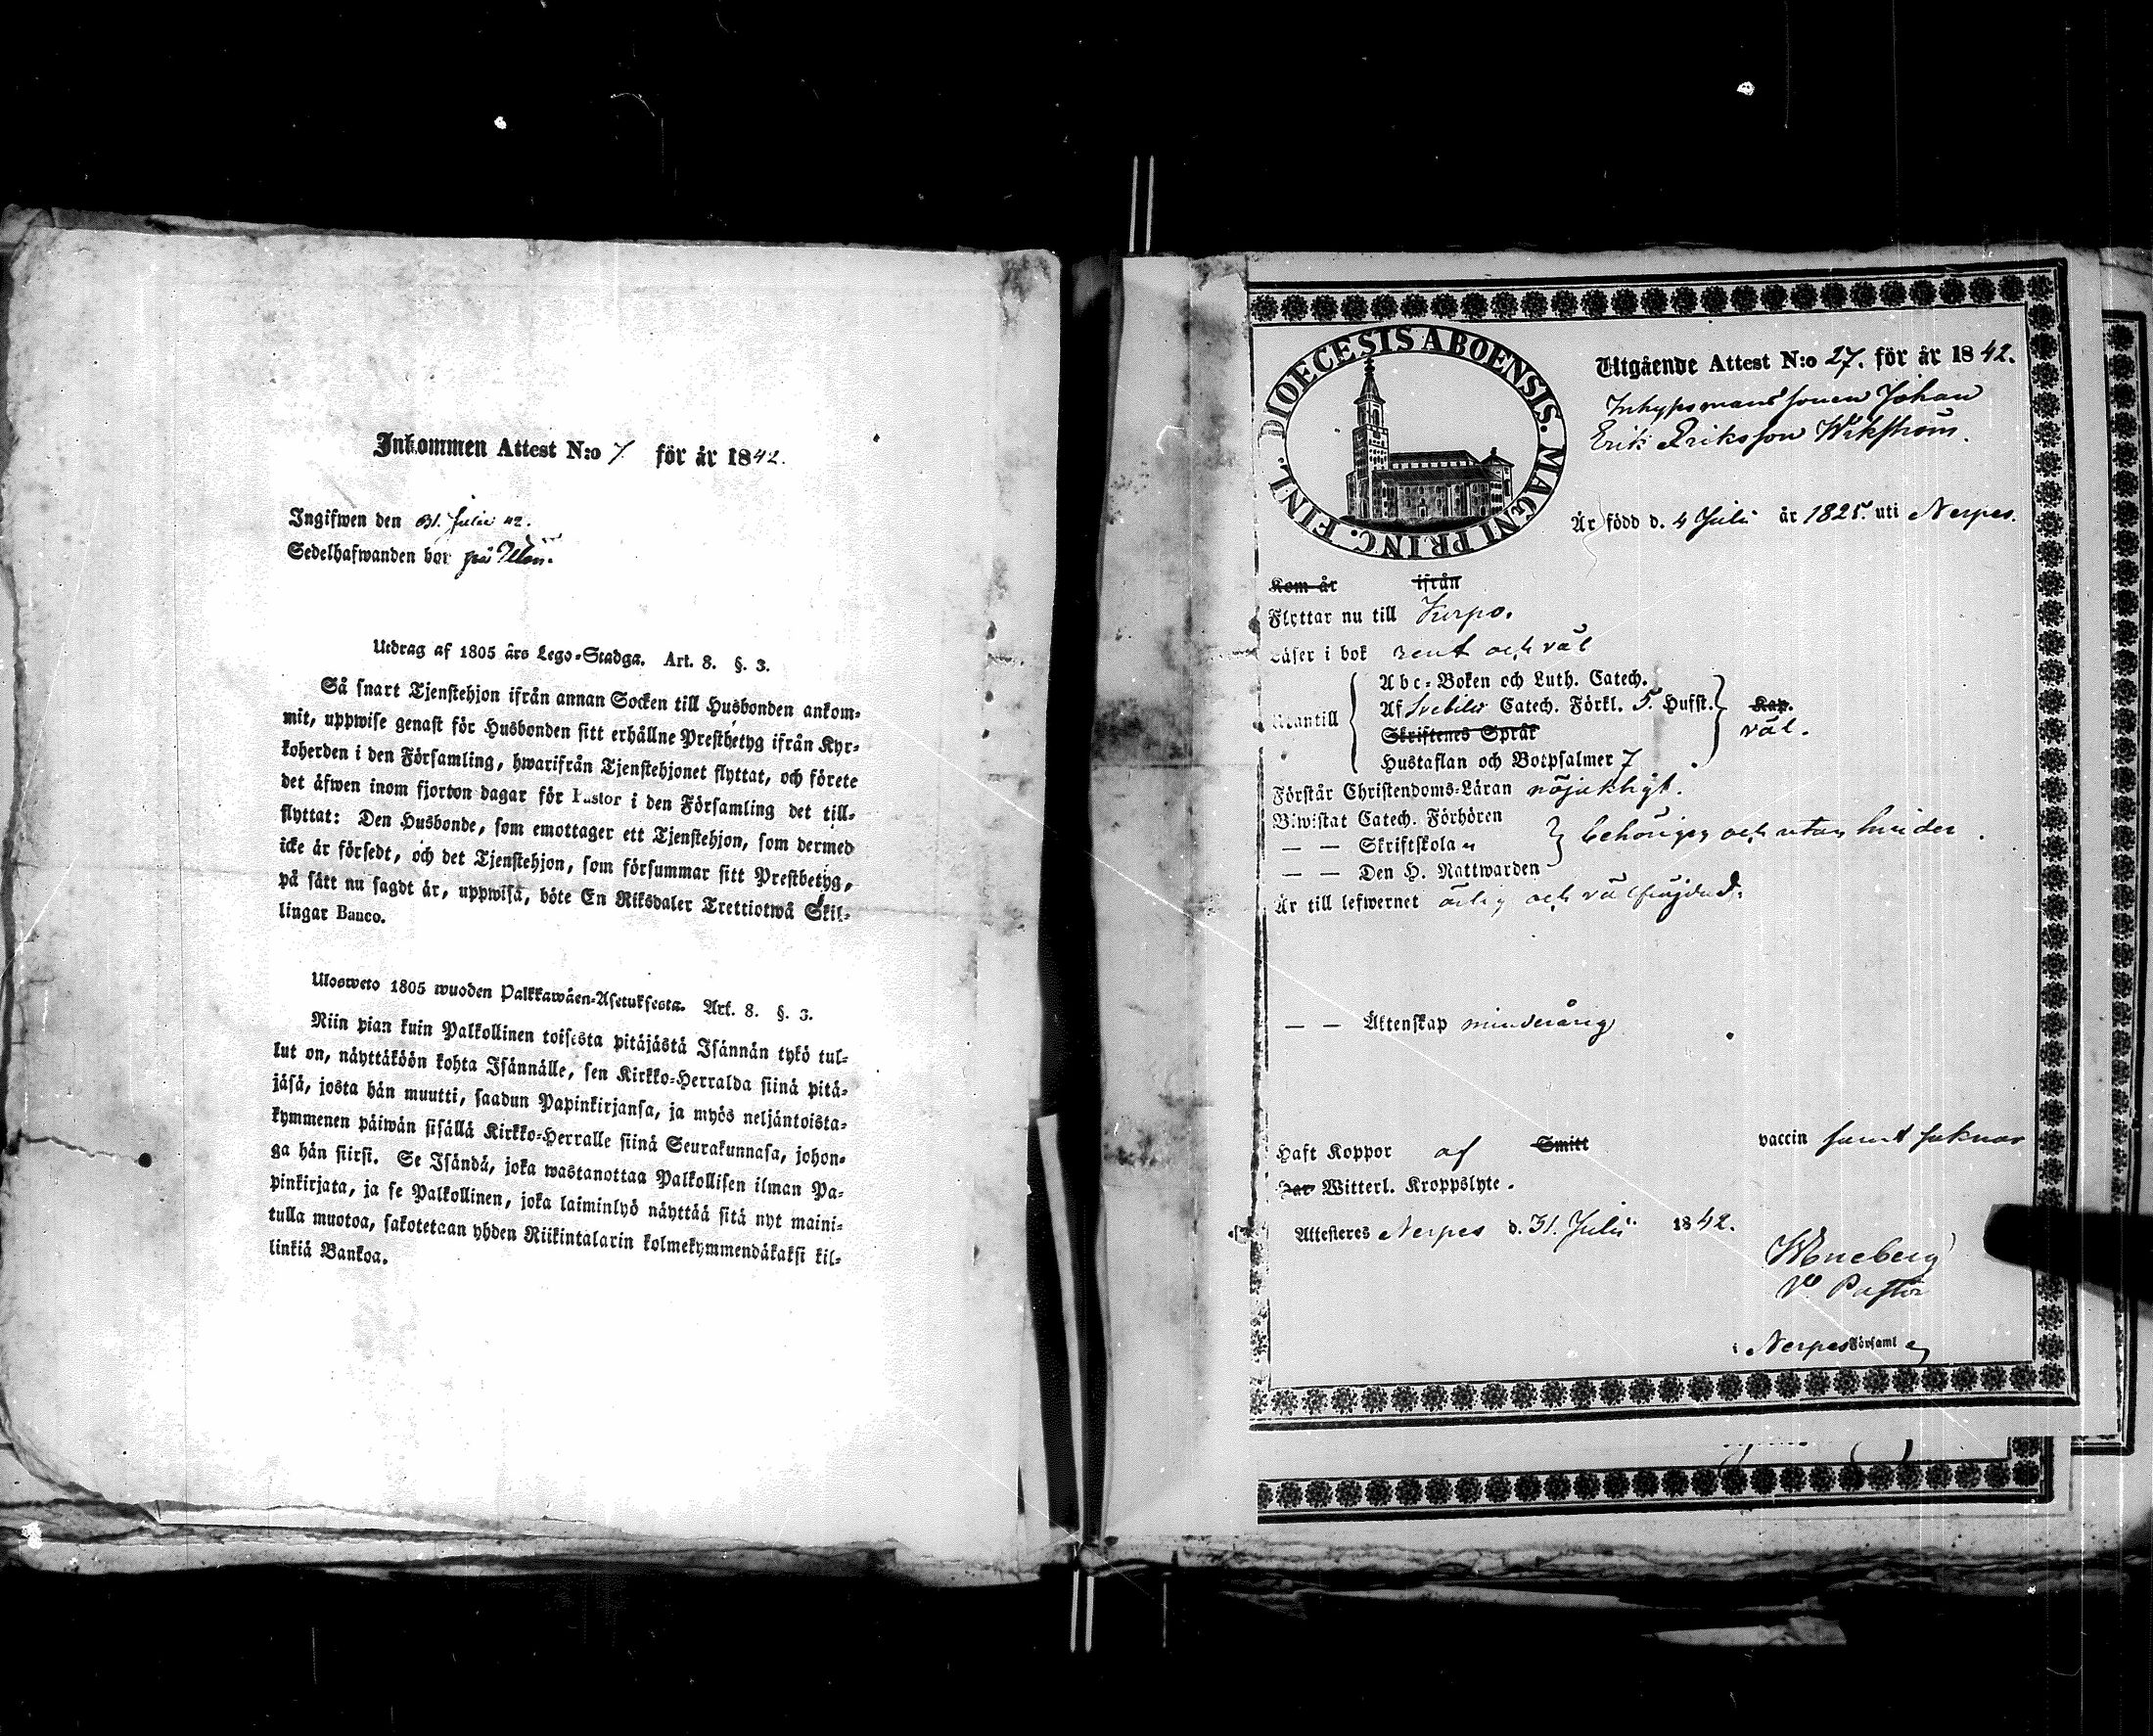 Inkommen Attest N:o 7 för år 1842.
Ingifwen den 31. Julii 42.
Sedelhafwanden bor på
Utdrag af 1805 års Lego-Stadga. Art. 8. §. 3.
Så snart Tjenstehjon ifrån annan Socken till Husbonden ankom-
mit, uppwise genast för Husbonden sitt erhållne Prestbetyg ifrån Kyr-
koherden i den Församling, hwarifrån Tjenstehjonet flyttat, och förete
det äfwen inom fjorton dagar för Pastor i den Församling det till-
flyttat: Den Husbonde, som emottager ett Tjenstehjon, som dermed
icke är försedt, och det Tjenstehjon, som försummar sitt Prestbetyg,
på sätt nu sagdt är, uppwisa, böte En Riksdaler Trettiotwå Skil-
lingar Banco.
Ulosweto 1805 wuoden Palkkawäen-Asetuksesta. Art. 8. §. 3.
Niin pian kuin Palkollinen toisesta pitäjästä Isännän tykö tul-
lut on, näyttäköön kohta Isännälle, sen Kirkko-Herralda siinä pitä-
jäsä, josta hän muutti, saadun Papinkirjansa, ja myös neljäntoista-
kymmenen päiwän sisällä Kirkko-Herralle siinä Seurakunnasa, johon-
ga hän siirsi. Se Isändä, joka wastanottaa Palkollisen ilman Pa-
pinkirjata, ja se Palkollinen, joka laiminlyö näyttää sitä nyt maini-
tulla muotoa, sakotetaan yhden Riikintalarin kolmekymmendäkaksi kil-
linkiä Bankoa.
DIOECESIS ABOENSIS. MAGNI PRINC. FINL.
Utgående Attest N:o 27. för år 1842.
Inhysmans sonen Johan
Erik Eriksson Wikström.
Är född d. 4 Julii år 1825. uti Nerpes.
Kom år ifrån
Flyttar nu till Korpo.
Läser i bok rent och väl
Abc-Boken och Luth. Catech.
Af Svebilii Catech. Förkl. 5. Hufst. Kap.
Utantill väl.
Skriftenes Språk
Hustaflan och Botpsalmer 7
Förstår Christendoms-Läran nöjaktligt.
Biwistat Catech. Förhören
— — Skriftskola behörigen och utan hinder.
— — Den H. Nattwarden
Är till lefwernet ärlig och välfrejdad.
— — Äktenskap minderårig
Haft Koppor af Smitt vaccin samt saknar
Har Witterl. Kroppslyte.
Attesteres Nerpes d. 31. Julii 1842.
V. Pastor
i Nerpes Församl